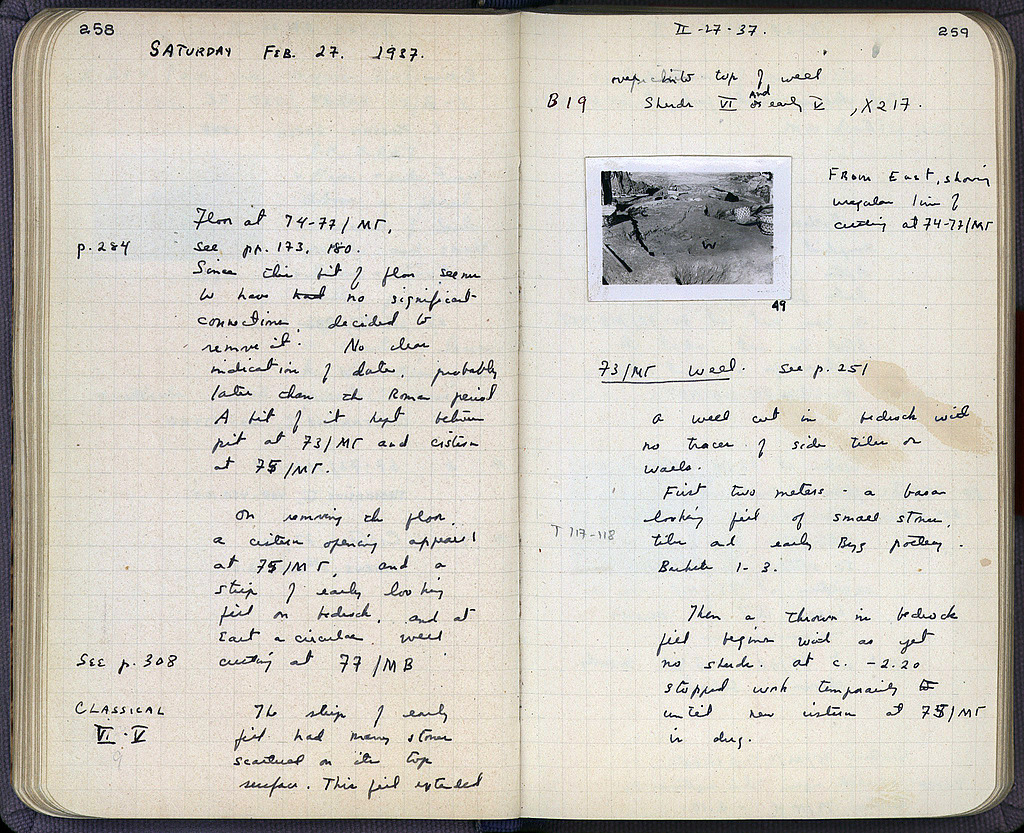 258
SATURDAY FEB. 27. 1937.
Floor at 74-77/MT.
p. 284
See pp. 173, 180.
Since this bit of floor seems
to have had no significant
connections, decided to
remove it. No clear
indication of date, probably
later than the Roman period
A bit of it kept between
pit at 73/MT and cistern
at 75/MT.
On removing the floor,
a cistern opening appears
at 75/MT, and a
strip of early looking
fill on bedrock, and at
East a circular well
SEE p. 308
cutting at 77/MB
CLASSICAL
VI-V
9
The strip of early
fill had many stones
scattered on its top
surface. This fill extended
II-27-37.
259
over into top of well
B19
Sherds VI and early V, X217.
FROM East, showing
irregular line of
cutting at 74-77/MT
W
49
73/MT well. See p. 251
A well cut in bedrock with
no traces of side tiles or
walls.
First two meters - a
looking fill of small stones,
T 117-118
tiles and early Byz pottery.
Baskets 1-3.
Then a thrown in bedrock
fill begins with as yet
no sherds. At c. -2.20
stopped work temporarily
until new cistern at 75/MT
is dug.